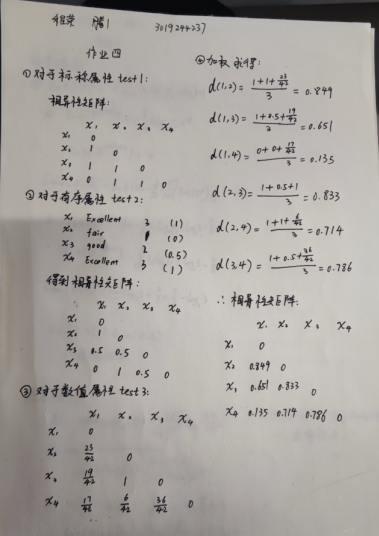 3019244237
作业四
①对于标称属性 test1:
相异性矩阵:
x₁ x₂ x₃ x₄
x₁ 0
x₂ 1 0
x₃ 1 1 0
x₄ 0 1 1 0
②对于有序属性 test2:
x₁ Excellent 3 (1)
x₂ fair 1 (0)
x₃ good 2 (0.5)
x₄ Excellent 3 (1)
得到相异性矩阵:
x₁ x₂ x₃ x₄
x₁ 0
x₂ 1 0
x₃ 0.5 0.5 0
x₄ 0 1 0.5 0
③对于数值属性 test3:
x₁ x₂ x₃ x₄
x₁ 0
x₂ 23/42 0
x₃ 19/42 1 0
x₄ 17/42 6/42 36/42 0
④加权求得:
d(1,2) = (1+1+23/42)/3 = 0.849
d(1,3) = (1+0.5+19/42)/3 = 0.651
d(1,4) = (0+0+17/42)/3 = 0.135
d(2,3) = (1+0.5+1)/3 = 0.833
d(2,4) = (1+1+6/42)/3 = 0.714
d(3,4) = (1+0.5+36/42)/3 = 0.786
∴相异性矩阵
x₁ x₂ x₃ x₄
x₁ 0
x₂ 0.849 0
x₃ 0.651 0.833 0
x₄ 0.135 0.714 0.786 0